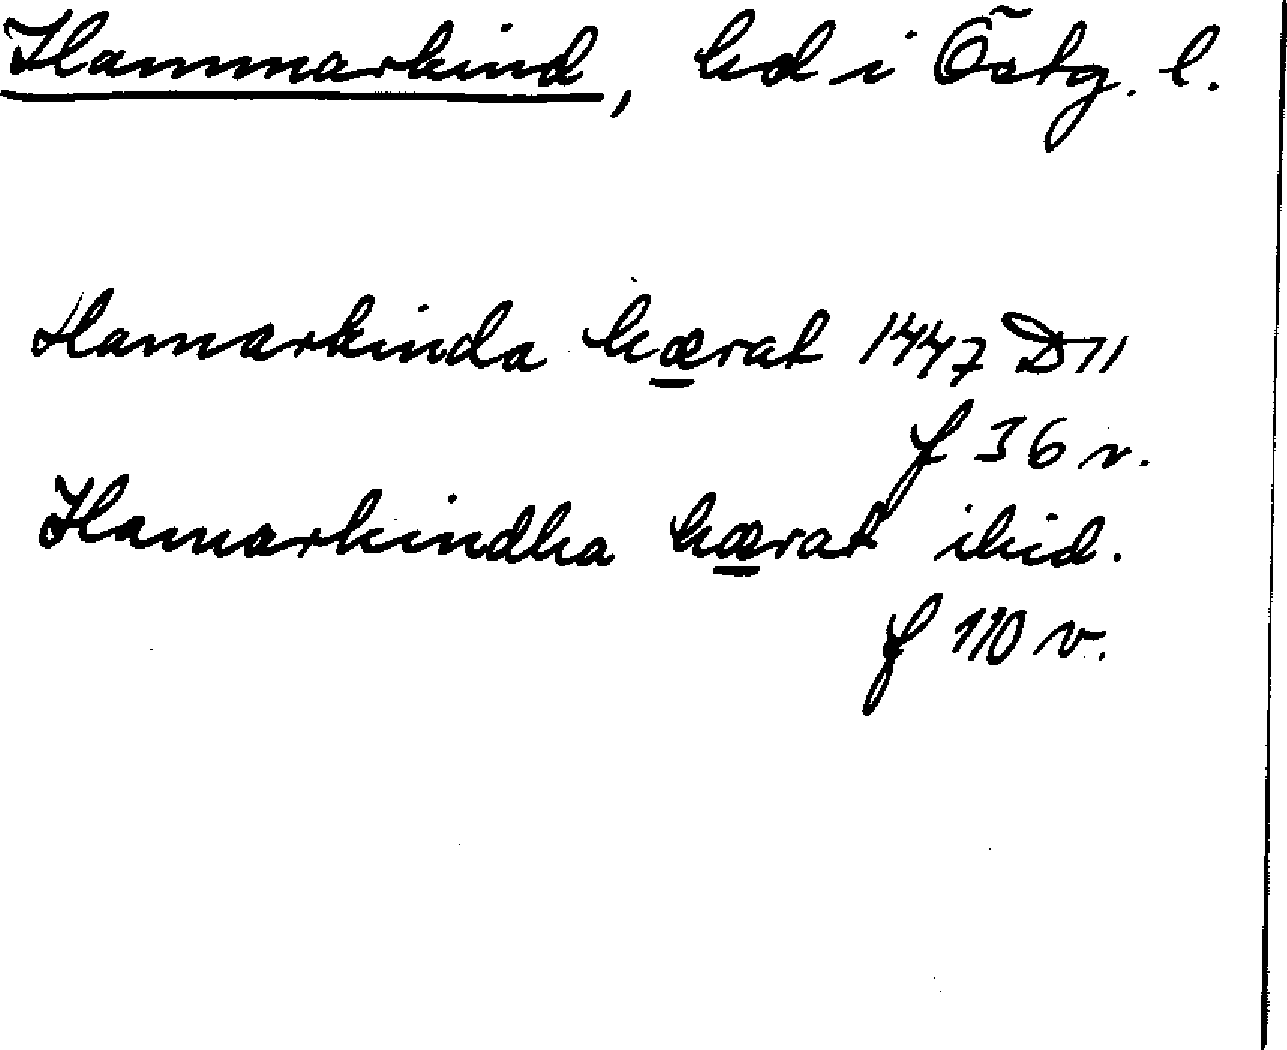 Hammarkind, hd i Östg. l.
Hamarkinda hærat 1447 D 11
f 36 v.
Hamarkindha hærat ibid.
f 110 v.